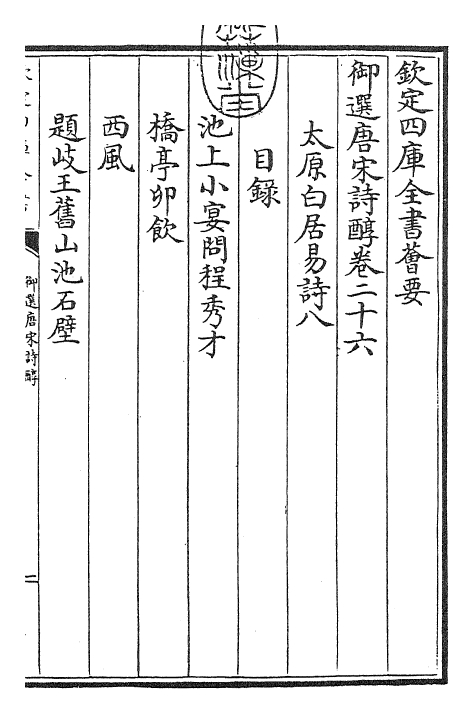 欽定四庫全書薈要
御選唐宋詩醇卷二十六
太原白居易詩八
目錄
池上小宴問程秀才
橋亭卯飲
西風
題岐王舊山池石壁
御選唐宋詩醇